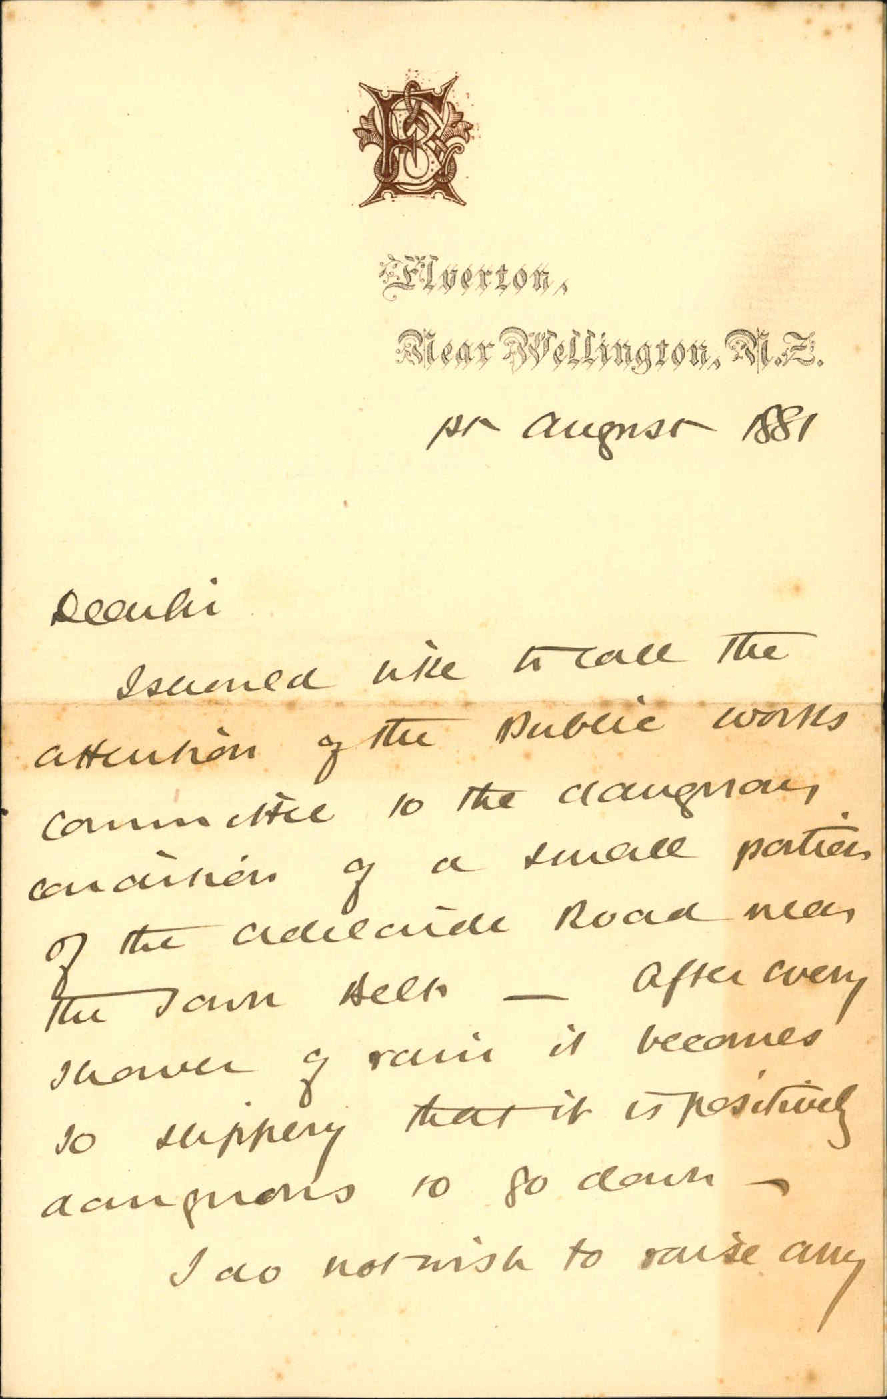 Elverton,
Near Wellington, N.Z.
1st August 1881
Dear Sir
I should like to call the
attention of the Public works
committee to the dangerous
condition of a small portion
of the Adelaide Road near
the Town Belt — After every
shower of rain it becomes
so slippery that it is positively
dangerous to go down —
I do not wish to raise any